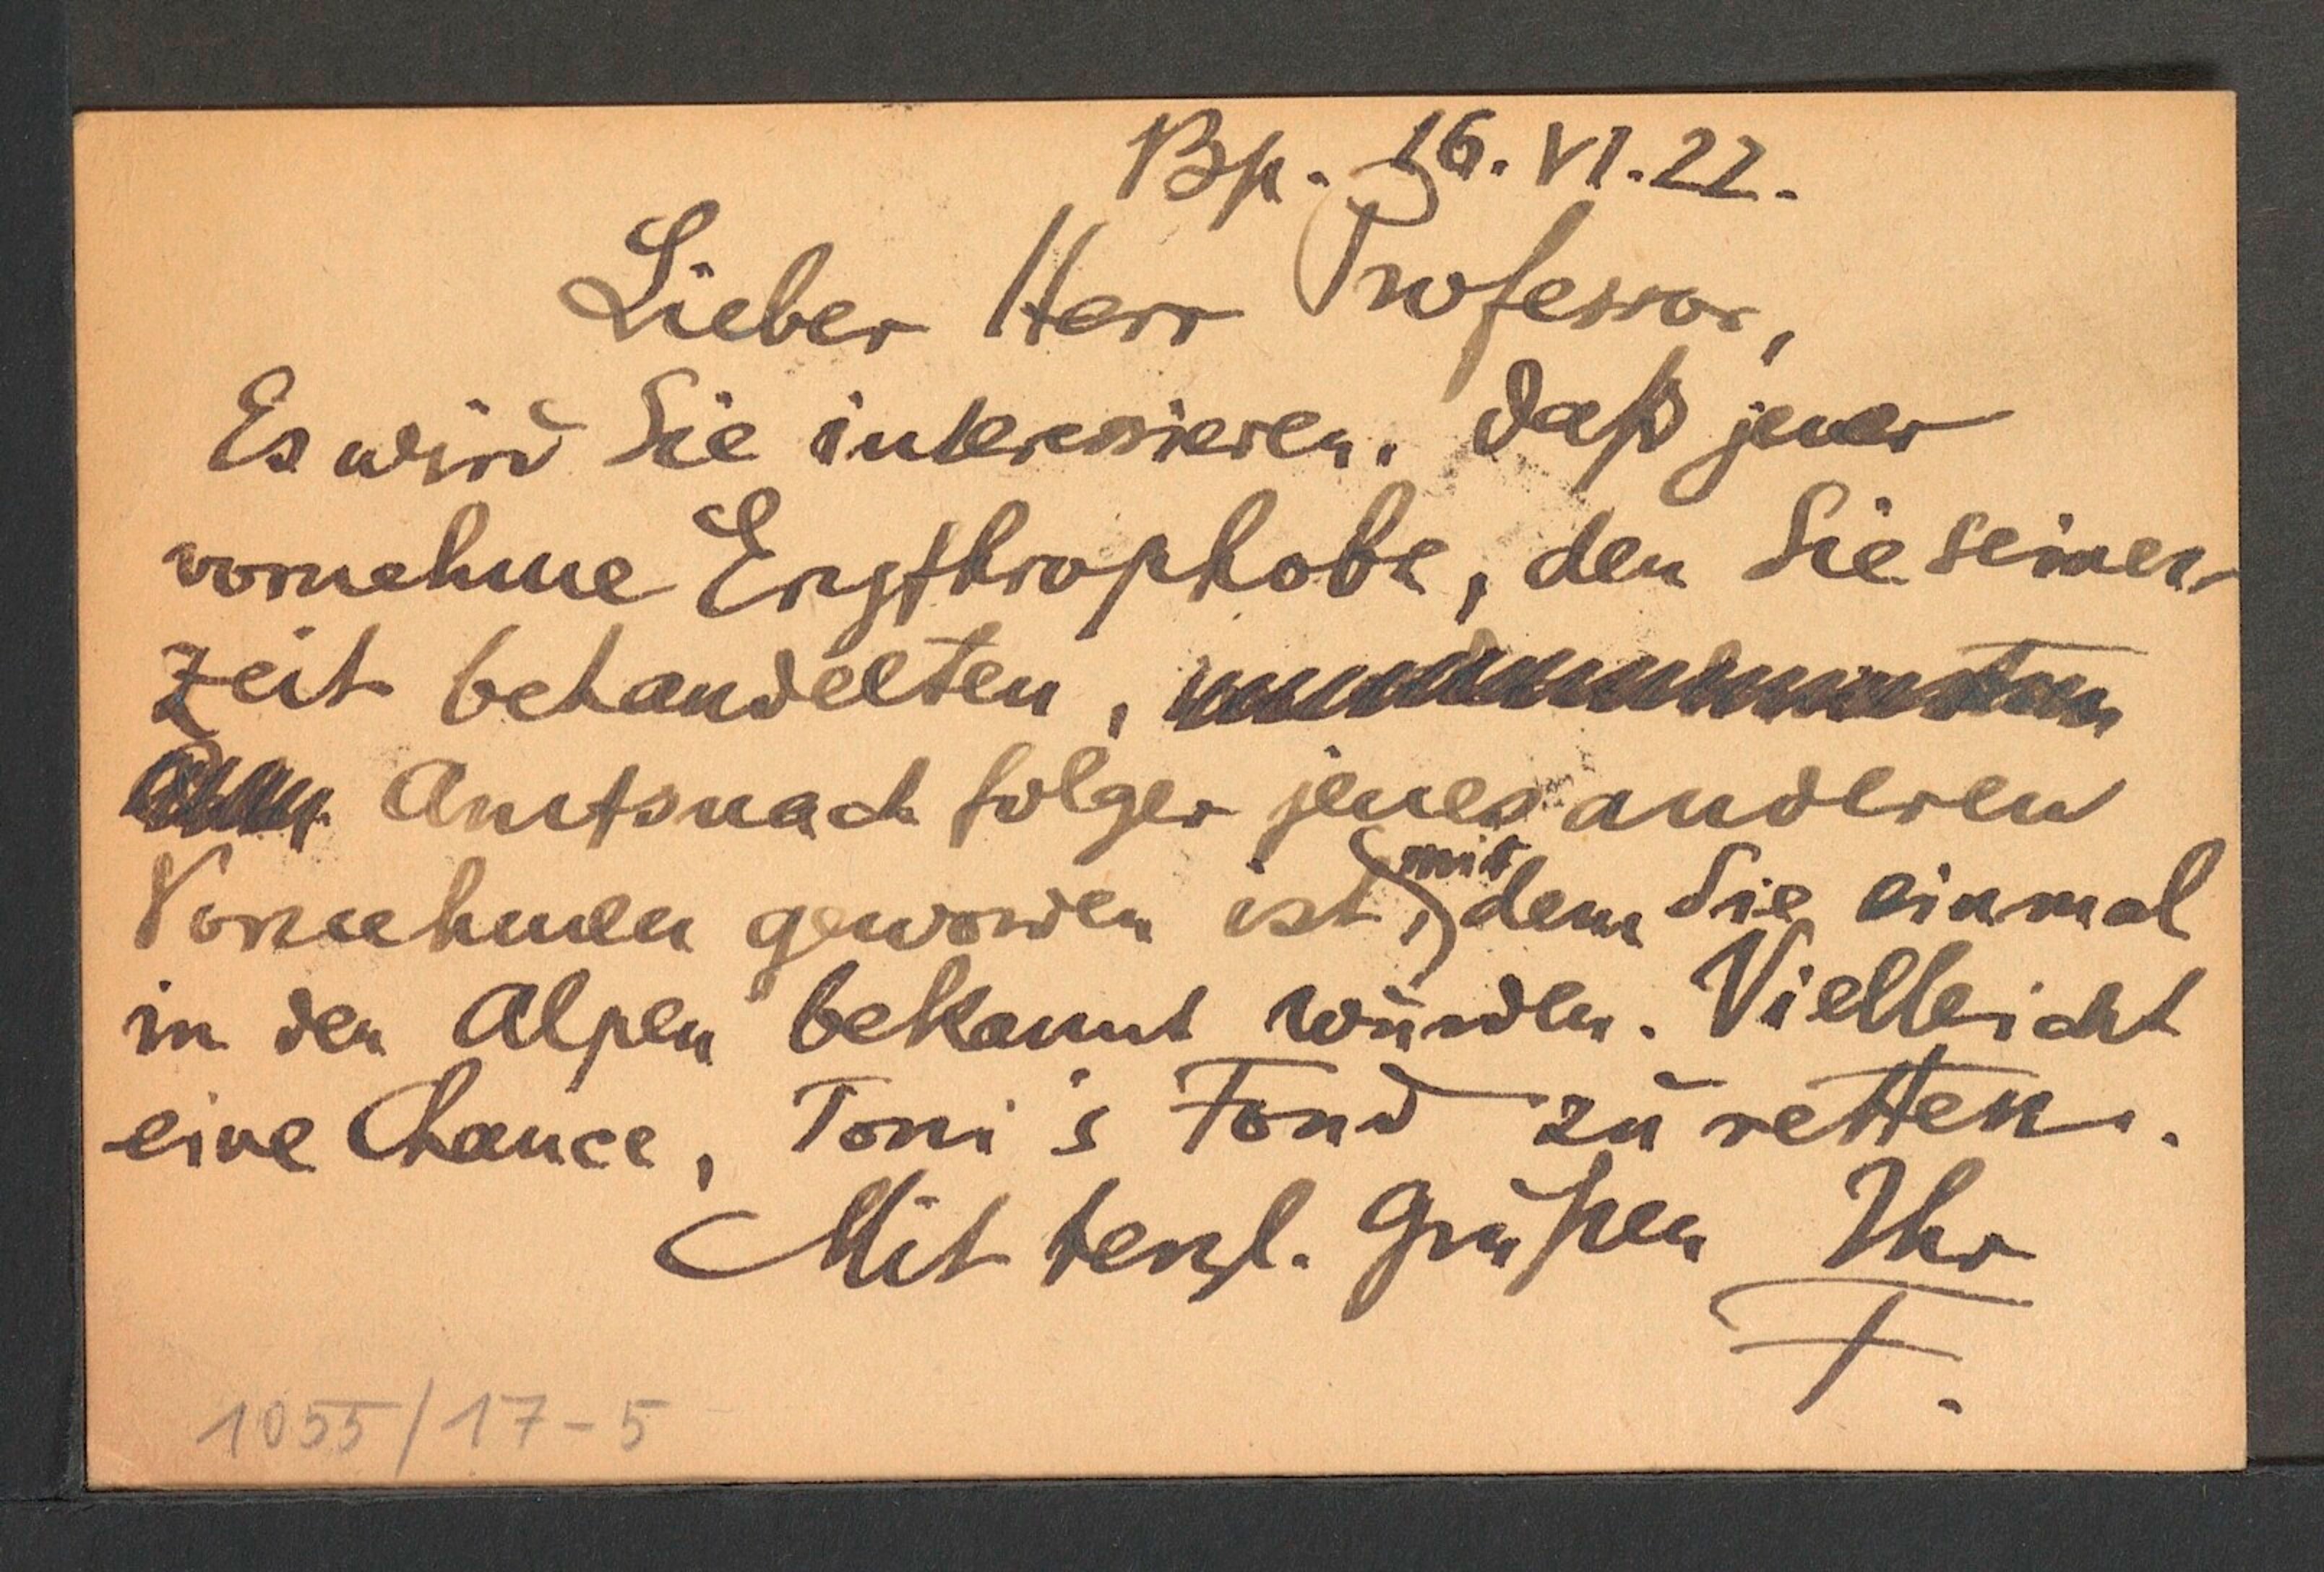 Bp. 16. VI. 22.
Lieber Herr Professor,
Es wird Sie interessieren, daß jener
vornehme Erythrophobe, den Sie seiner-
zeit behandelten,
Amtsnachfolger jenes anderen
Vornehmen geworden ist, mit dem Sie einmal
in den Alpen bekannt wurden. Vielleicht
eine Chance, Toni's Fond zu retten.
Mit herzl. Grüßen Ihr
F.
1055/17-5